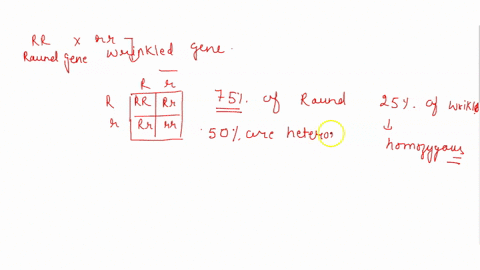 RR x rr
Raund gene wrinkled gene.
R r
R RR Rr
r Rr rr
75% of Raund
50% are heteror
25% of wrikle
↓
homozygous